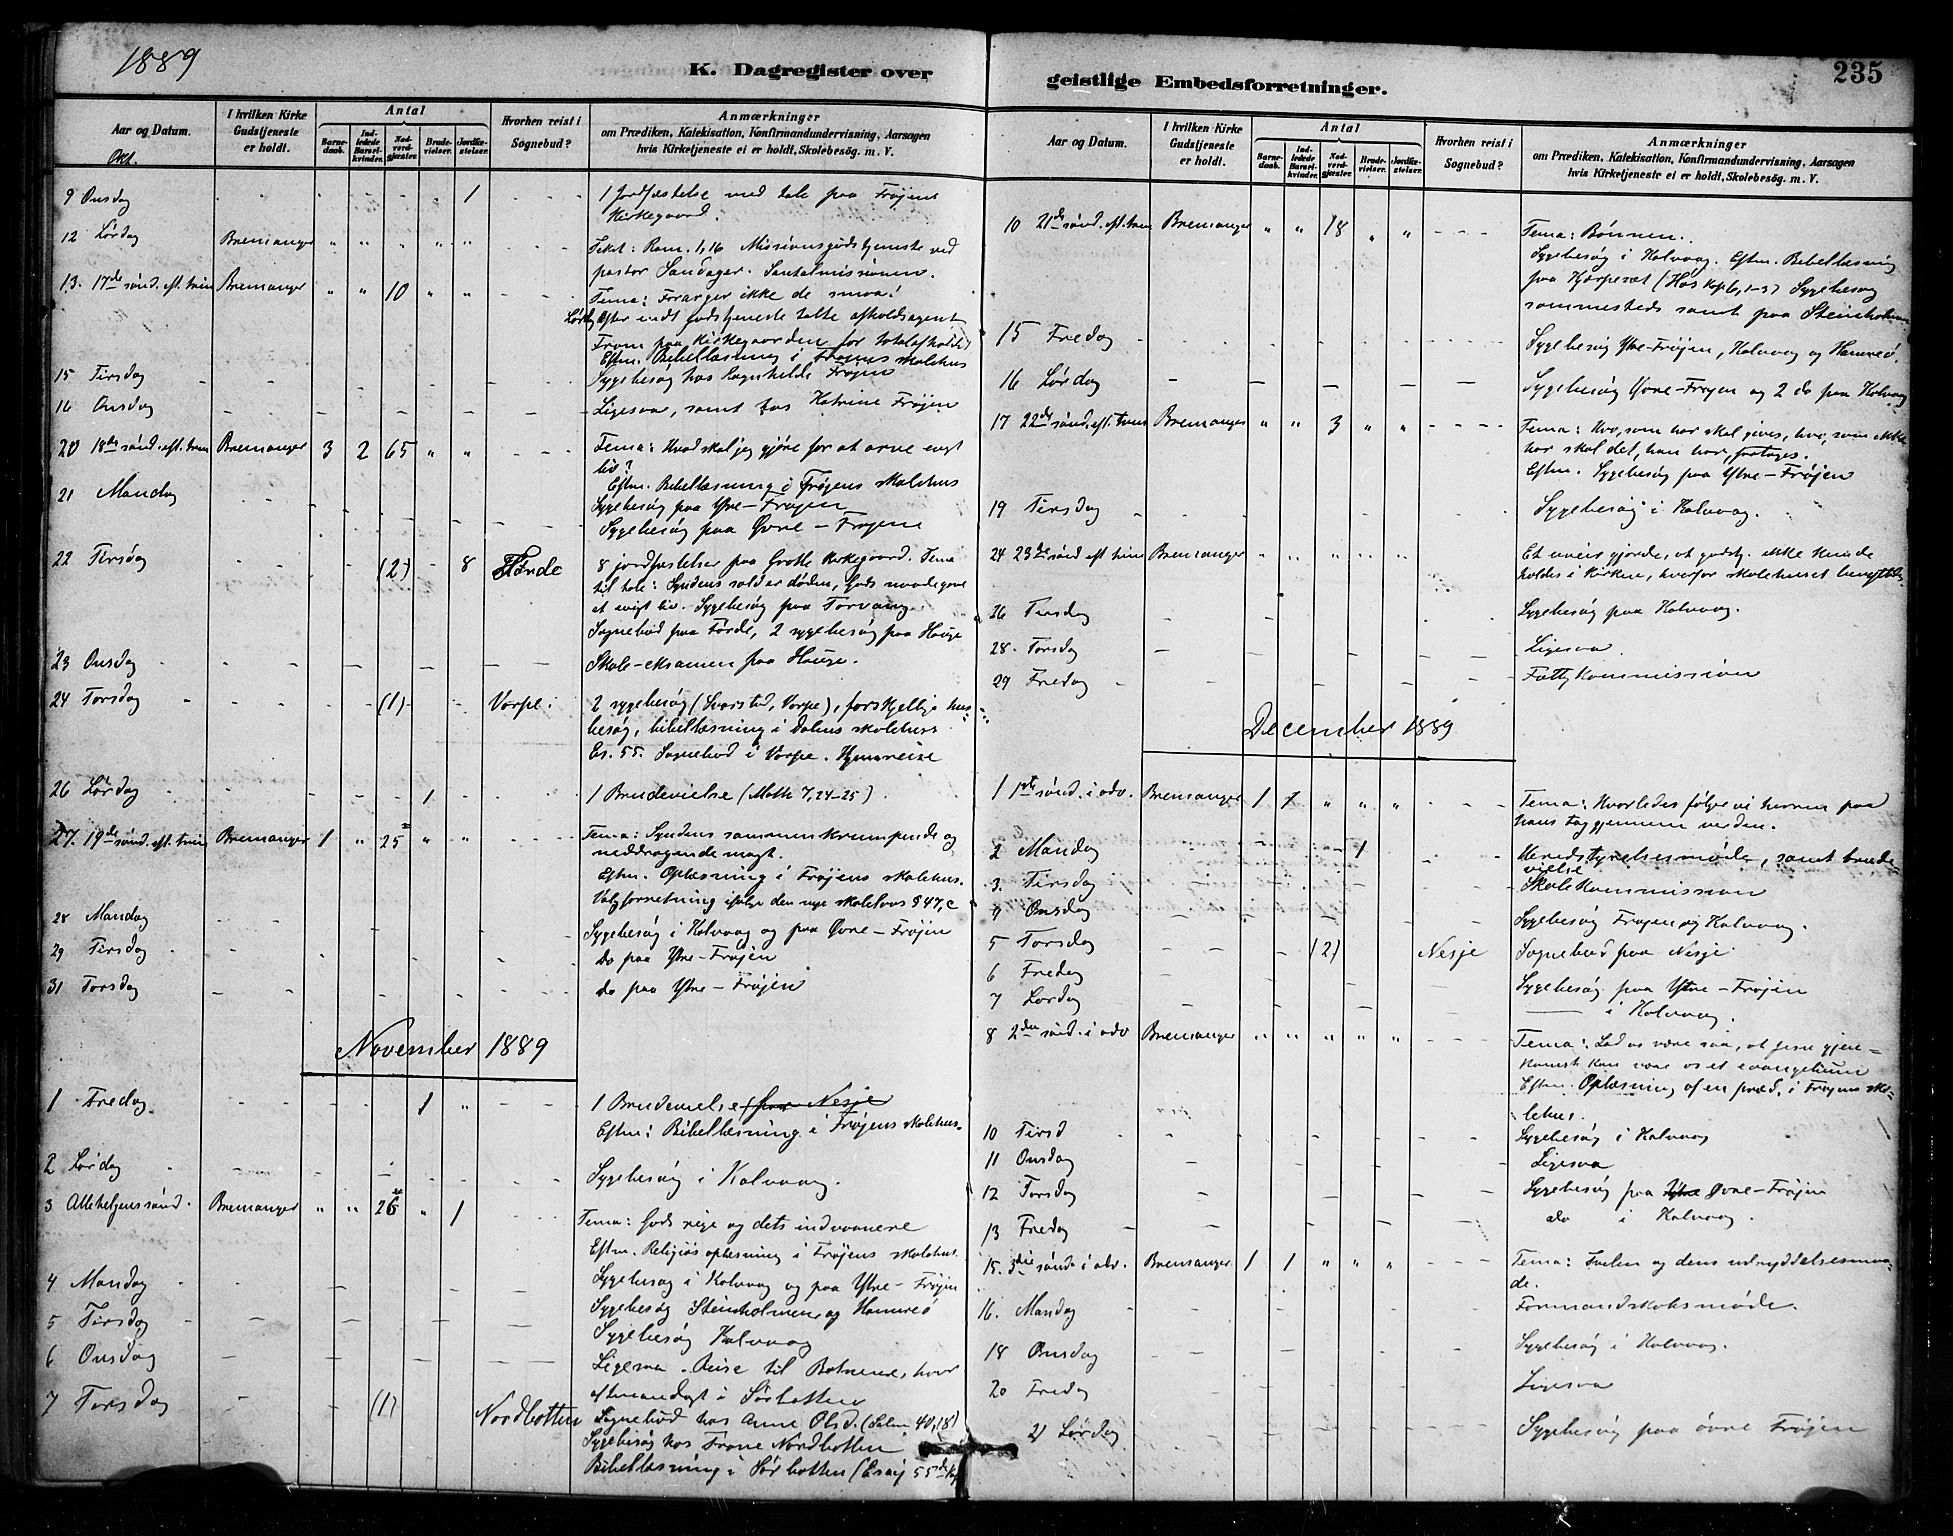 1889
K. Dagregister over
Aar og Datum.
I hvilken Kirke Gudstjeneste er holdt.
Antal
Barnedaab.
Indledede Barselkvinder.
Nadverdgjester.
Brudevielser.
Jordfæstelser.
Hvorhen reist i Sognebud?
Anmærkninger
om Prædiken, Katekisation, Konfirmandundervisning, Aarsagen
hvis Kirketjeneste ei er holdt, Skolebesøg. m. V.
Okt.
9 Onsdag 1 1 Jordfæstelse med tale paa Frøjens
Kirkegaard.
12 Lørdag Bremanger " " " " "
Tekst: Rom. 1,16 Missionsgudstjeneste ved
pastor Sandager. Santalmissionen.
13. 17de sønd. eft. trin Bremanger " " 10 " " Tema: Forarger ikke de smaa!
Lørdag Efter endt gudstjeneste talte afholdsagent
From paa Kirkegaarden for totalafhold
Eftm. Bibellæsning i Frøjens skolehus
15 Tirsdag Sygebesøg hos Ragnhilde Frøjen
16 Onsdag Ligesaa, samt hos Katrine Frøjen
20 18de sønd. eft. trin Bremanger 3 2 65 " " Tema: Hvad skal jeg gjøre for at arve evigt
liv?
Eftm. Bibellæsning i Frøjens skolehus
21 Mandag Sygebesøg paa Ytre-Frøjen
Sygebesøg paa Øvre-Frøjen
22 Tirsdag (2) 8 Førde 8 jordfæstelser paa Grotle Kirkegaard. Tema
til tale: Syndens sold er døden, Guds naadegave
et evigt liv. Sygebesøg paa Torvang.
Sognebud paa Førde, 2 sygebesøg paa Hauge
23 Onsdag Skole-eksamen paa Hauge.
24 Torsdag (1) Vorpe 2 sygebesøg (Svarstad, Vorpe), forskjellige hus-
besøg, bibellæsning i Dalens skolehus
Es. 55. Sognebud i Vorpe. Hjemreise
26 Lørdag 1 1 Brudevielse (Math 7,24-25)
27. 19de sønd. eft. trin Bremanger 1 " 25 " " Tema: Syndens sammenkrumpende og
neddragende magt.
Eftm. Oplæsning i Frøjens skolehus.
Valgforretning ifølge den nye skolelovs § 47, c
28 Mandag Sygebesøg i Kalvaag og paa Øvre-Frøjen
29 Tirsdag Do paa Ytre-Frøjen
31 Torsdag do paa Ytre-Frøjen
November 1889
1 Fredag. 1 " 1 Brudevielse (paa Nesje
Eftm: Bibellæsning i Frøjens skolehus.
2 Lørdag Sygebesøg i Kalvaag.
3 Allehelgenssønd. Bremanger " " 26 " 1
Tema: Guds rige og dets indvaanere
Eftm. Religiøs oplæsning i Frøjens skolehus.
4 Mandag Sygebesøg i Kalvaag og paa Ytre-Frøjen
5 Tirsdag Sygebesøg Steinholmen og Hamreø
6 Onsdag Sygebesøg Kalvaag
Ligesaa. Reise til Botnene, hvor
7 Torsdag (1) Nordbotten i Sørbotten
Sognebud hos Anne Olsd. (Salm. 40,18)
Sygebesøg hos Nordbotten
Bibellæsning i Sørbotten (Esaj 55de Kap
geistlige Embedsforretninger.
235
Aar og Datum.
I hvilken Kirke Gudstjeneste er holdt.
Antal
Barnedaab.
Indledede Barselkvinder.
Nadverdgjester.
Brudevielser.
Jordfæstelser.
Hvorhen reist i Sognebud?
Anmærkninger
om Prædiken, Katekisation, Konfirmandundervisning, Aarsagen
hvis Kirketjeneste ei er holdt, Skolebesøg. m. V.
10 21de sønd. eft. trin Bremanger " " 18 " " Tema: Bønnen.
Sygebesøg i Kalvaag. Eftm. Bibellæsning
paa (Hos Kap 6,1-3) Sygebesøg
sammesteds samt paa Steinholmen
15 Fredag Sygebesøg Ytre-Frøjen, Kalvaag og Hamreø.
16 Lørdag Sygebesøg Øvre-Frøjen og 2 do paa Kalvaag
17 22de sønd. eft. trin Bremanger " " 3 " " Tema: Hvo, som har skal gives, hvo, som ikke
har skal det, han har, fratages.
Eftm. Sygebesøg paa Ytre-Frøjen
19 Tirsdag Sygebesøg i Kalvaag.
24 23de sønd eft. trin Bremanger " " " " " Et uveir gjorde, at gudstj. ikke kunde
holdes i Kirken, hvorfor skolehuset benyttedes
26 Tirsdag Sygebesøg paa Kalvaag.
28. Torsdag Ligesaa.
29 Fredag Fattigkommission
December 1889
1 1ste sønd. i adv. Bremanger 1 1 " " " Tema: Hvorledes følge vi herren paa
hans tog gjennem verden.
2 Mandag 1 Heredstyrelsesmøde, samt brude-
vielse
3. Tirsdag Skolekommission
4 Onsdag Sygebesøg Frøjen og Kalvaag.
5 Torsdag (2) Nesje Sognebud paa Nesje
6 Fredag Sygebesøg paa Ytre-Frøjen
7 Lørdag — i Kalvaag.
8 2den sønd. i adv Bremanger " " " " " Tema: Lad os være saa, at Jesu gjen-
komst kan være os et evangelium
Eftm. Oplæsning af en præd. i Frøjens sko-
lehus.
10 Tirsd Sygebesøg i Kalvaag
11 Onsdag Ligesaa
12 Torsdag Sygebesøg paa Ytre Øvre-Frøjen
13 Fredag do i Kalvaag.
15. 3die sønd. i adv. Bremanger 1 1 " " " Tema: Tvilen og dens udryddelsesmaa-
de.
16. Mandag Formandskabsmøde.
18 Onsdag Sygebesøg i Kalvaag.
20 Fredag Ligesaa
21 Lørdag Sygebesøg paa øvre Frøjen